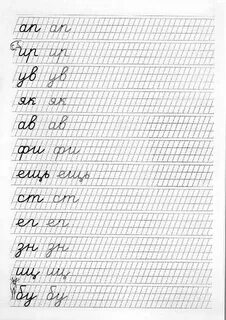 ап ап
ир ир
ув ув
як як
ав ав
фи фи
ещь ещь
ст ст
ег ег
зн зн
ищ ищ
бу бу